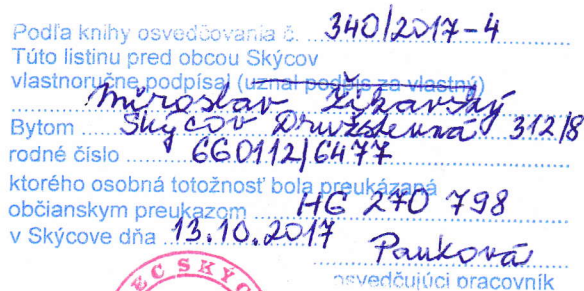 Podľa knihy osvedčovania č. 340/2017-4
Túto listinu pred obcou Skýcov
vlastnoručne podpísal (uznal podpis za vlastný)
Miroslav Žikavský
Bytom Skýcov Družstevná 312/8
rodné číslo 660112/6477
ktorého osobná totožnosť bola preukázaná
občianskym preukazom HG 270 798
v Skýcove dňa 13.10.2017 Pauková
osvedčujúci pracovník
EC SKÝC